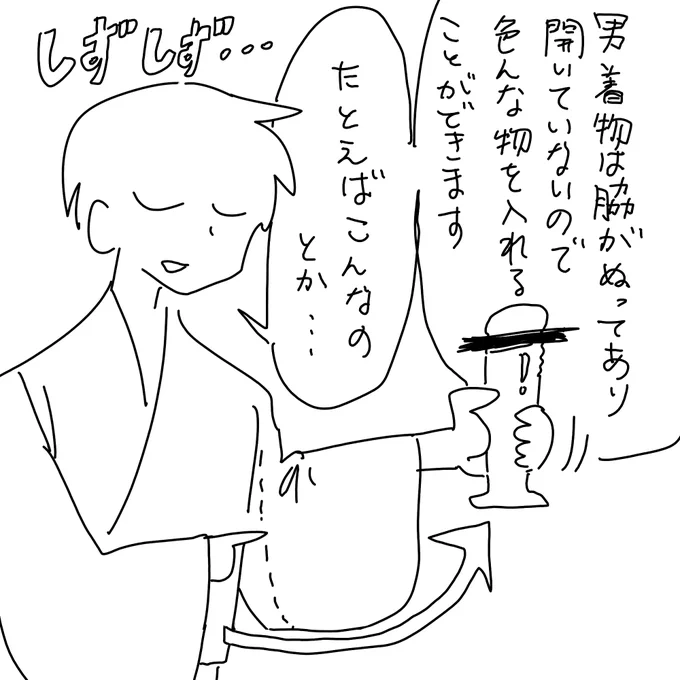 男着物は脇がぬってあり
開いていないので
色んな物を入れる
ことができます
たとえばこんなの
とか…
しずしず…